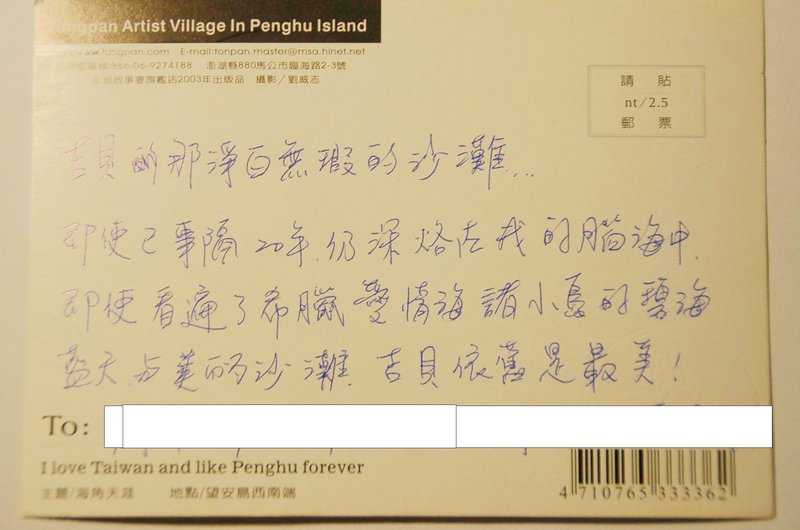 ngpan Artist Village In Penghu Island
.com E-mail:tonpan.master@msa.hinet.net
886-06-9274188 澎湖縣880馬公市臨海路2-3號
故事妻旗艦店2003年出版品 攝影/劉威志
請貼
nt/2.5
郵票
吉貝的那淨白無瑕的沙灘...
即便已事隔20年,仍深烙在我的腦海中,
即便看遍了希臘愛情海諸小島的碧海
藍天,与美的沙灘,吉貝依舊是最美!
To:
I love Taiwan and like Penghu forever
主題/海角天涯 地點/望安島西南端
4 710765 333362